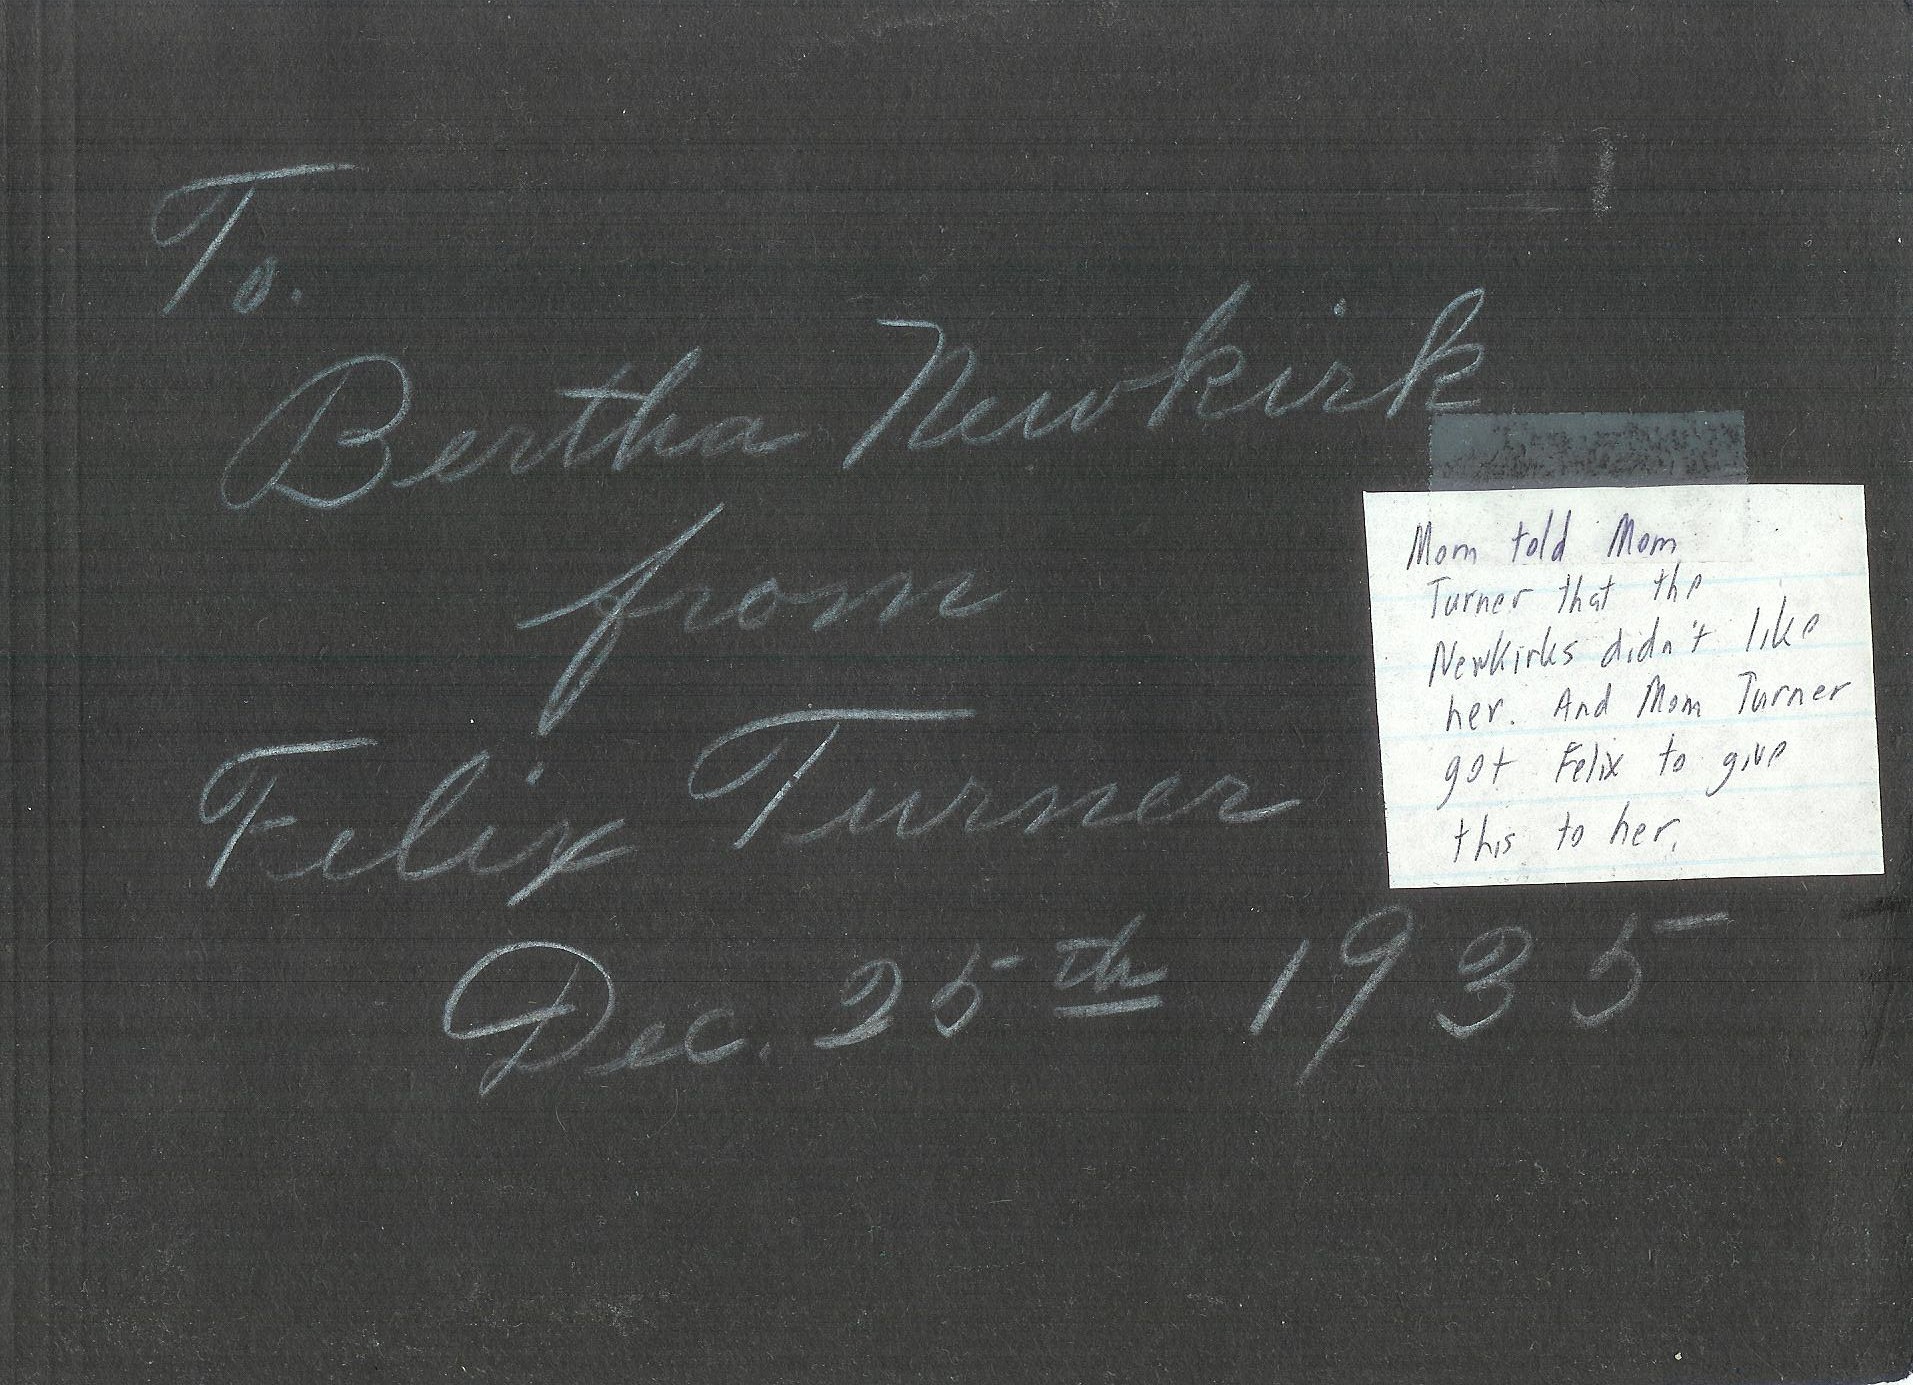 To.
Bertha Newkirk
from
Felix Turner
Dec. 25th 1935
Mom told Mom
Turner that the
Newkirks didn't like
her. And Mom Turner
got Felix to give
this to her.